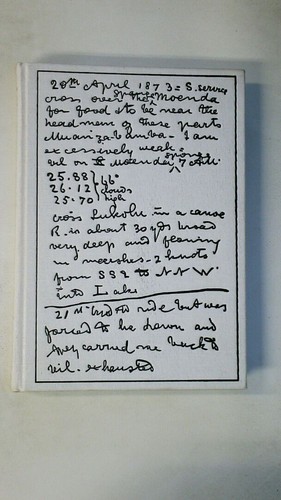 20th April 1873 = S. service
cross over the sponge Moenda
for food & to be near the
headman of these parts
Muanzambamba - I am
excessively weak -
vil on Moenda sponge 7 A.M.
25.88 66°
26.12 clouds
25.70 high
cross Lukolu in a canoe
R. is about 30 yds broad
very deep and flowing
in marshes - 2 knots
from SSE to NNW.
into Lake
21st tried to ride but was
forced to lie down and
they carried me back to
vil. exhausted